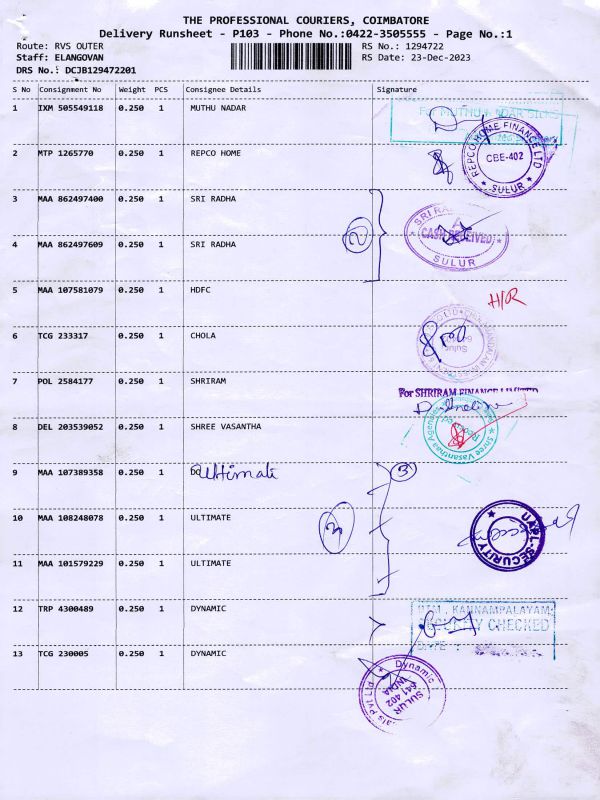 THE PROFESSIONAL COURIERS, COIMBATORE
Delivery Runsheet - P103 - Phone No.:0422-3505555 - Page No.:1
Route: RVS OUTER RS No.: 1294722
Staff: ELANGOVAN RS Date: 23-Dec-2023
DRS No.: DCJB129472201
S No Consignment No Weight PCS Consignee Details Signature
1 IXM 505549118 0.250 1 MUTHU NADAR
For MUTHU
2 MTP 1265770 0.250 1 REPCO HOME
REPCO HOME FINANCE LTD CBE-402 SULUR
3 MAA 862497400 0.250 1 SRI RADHA
2
SRI CASH RECEIVED SULUR
4 MAA 862497609 0.250 1 SRI RADHA
5 MAA 107581079 0.250 1 HDFC
H/R
6 TCG 233317 0.250 1 CHOLA
Sulur
7 POL 2584177 0.250 1 SHRIRAM
For SHRIRAM FINANCE LIMITED
8 DEL 203539052 0.250 1 SHREE VASANTHA
Shree Vasanthaa Agencies
9 MAA 107389358 0.250 1 Ultimate
3
10 MAA 108248078 0.250 1 ULTIMATE
3
UAPL-SECURITY
11 MAA 101579229 0.250 1 ULTIMATE
12 TRP 4300489 0.250 1 DYNAMIC
KANNAMPALAYAM
SECURITY CHECKED
DATE :
13 TCG 230005 0.250 1 DYNAMIC
Dynamic Pvt Ltd SULUR 641 402 INDIA